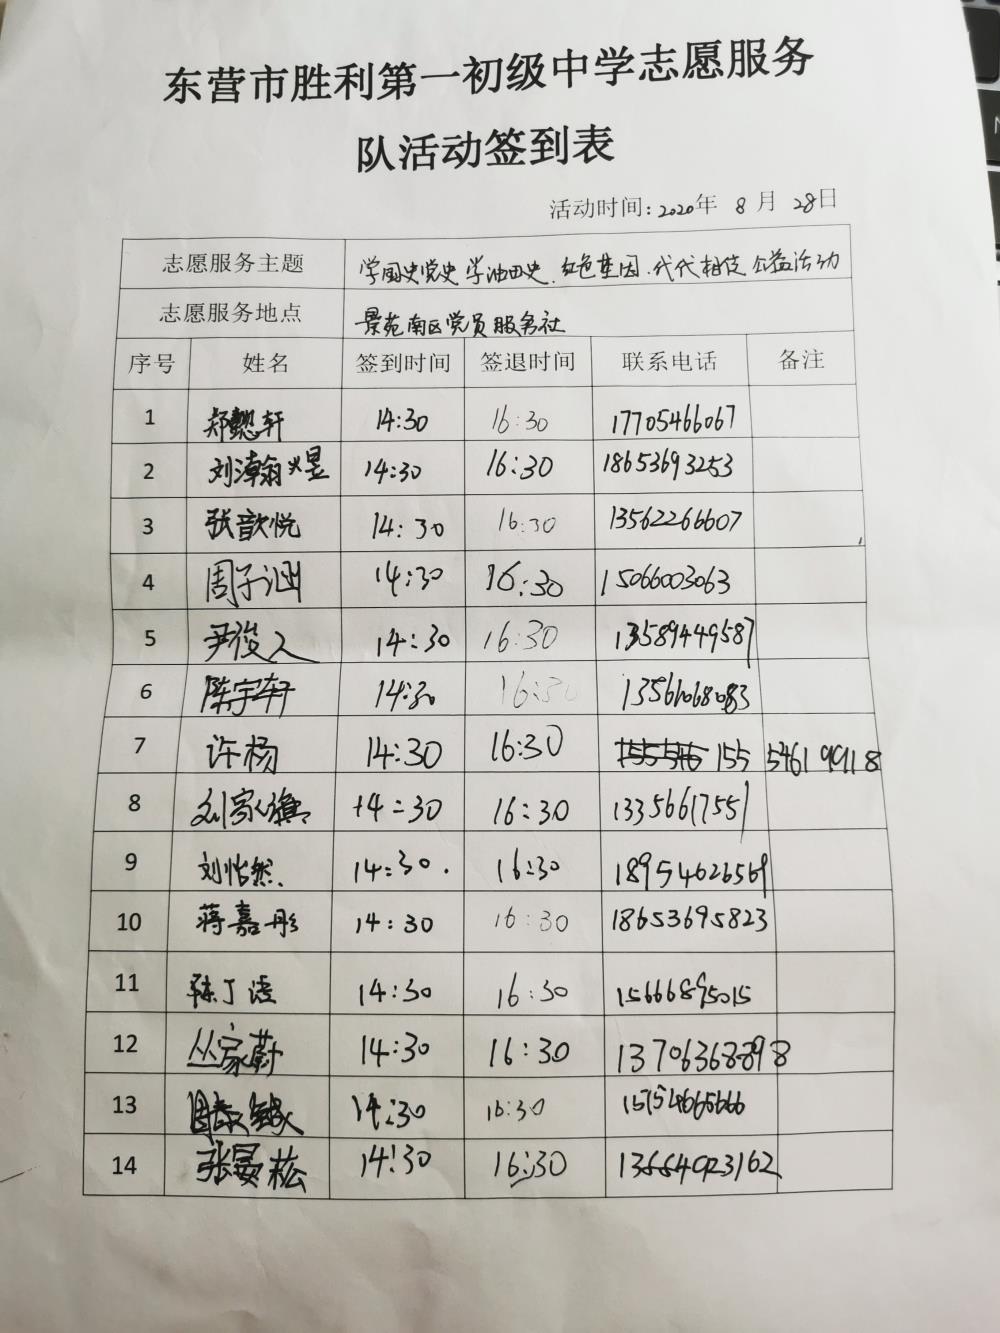 东营市胜利第一初级中学志愿服务
队活动签到表
活动时间:2020年 8月 28日
志愿服务主题 学国史党史 学油田史、红色基因、代代相传 公益活动
志愿服务地点 景苑南区党员服务社
序号 姓名 签到时间 签退时间 联系电话 备注
1 郑懿轩 14:30 16:30 17705466067
2 刘漳翔煜 14:30 16:30 18653693253
3 张歆悦 14:30 16:30 13562266607
4 周子涵 14:30 16:30 15066003063
5 尹俊人 14:30 16:30 13589449587
6 陈宇轩 14:30 16:30 13561068083
7 许杨 14:30 16:30 155 54619918
8 刘家旗 14:30 16:30 13356617551
9 刘怡然 14:30 16:30 18954626569
10 蒋嘉彤 14:30 16:30 18653695823
11 陈丁语 14:30 16:30 15666895015
12 丛家蔚 14:30 16:30 13706368898
13 14:30 16:30
14 张晏菘 14:30 16:30 13664023162